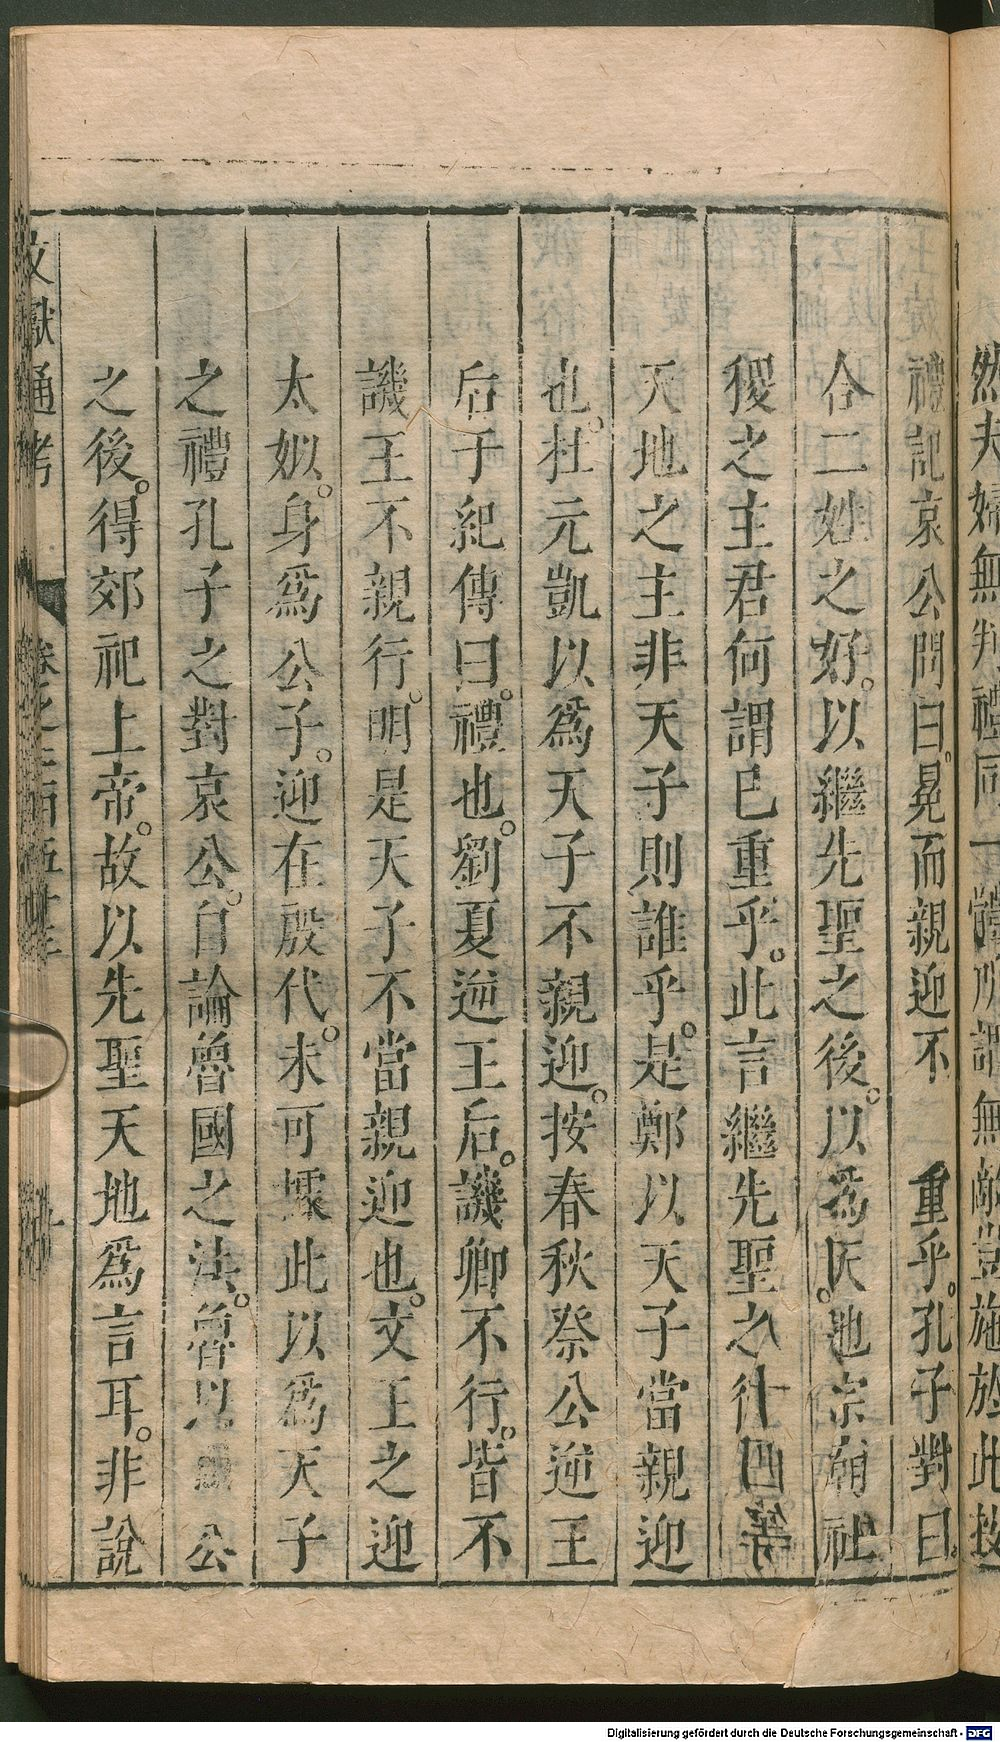 然夫婦無判禮同一體所謂無敵豈施於此按
禮記哀公問曰冕而親迎不 重乎孔子對曰
合二姓之好以繼先聖之後以為天地宗廟社
稷之主君何謂已重乎此言繼先聖之後
天地之主非天子則誰乎是鄭以天子當親迎
也杜元凱以為天子不親迎按春秋祭公逆王
后于紀傳曰禮也劉夏逆王后譏卿不行皆不
譏王不親行明是天子不當親迎也文王之迎
太姒身為公子迎在殷代未可據此以為天子
之禮孔子之對哀公自論魯國之法魯以 公
之後得郊祀上帝故以先聖天地為言耳非說
文獻通考 卷之二百五十三
Digitalisierung gefördert durch die Deutsche Forschungsgemeinschaft - DFG